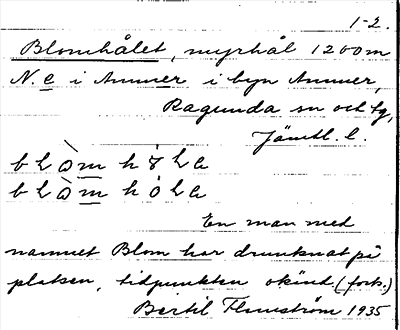 1-2.
Blomhålet, myrhål 1200 m
N.e i Ammer i byn Ammer,
Ragunda sn och tg,
Jämtl. l.
En man med
namnet Blom har drunknat på
platsen, tidpunkten okänd. (forts.)
Bertil Flemström 1935